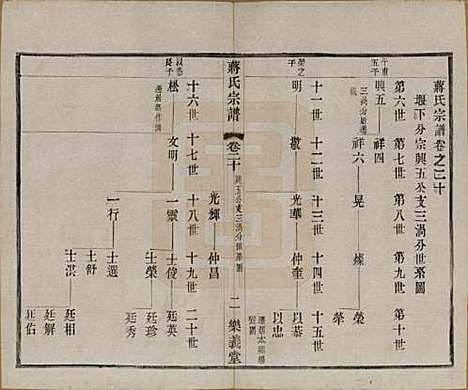 蔣氏宗譜卷之二十
堰下分宗興五公支三渦分世系圖
第六世 第七世 第八世 第九世 第十世
五子
興五 祥四
祥六 晃 燦 榮
犖
十一世 十二世 十三世 十四世 十五世
榮之子
明 徽 光華 仲奎 以恭
以忠
光輝 仲昌
蔣氏宗譜 卷二十 二 樂義堂
十六世 十七世 十八世 十九世 二十世
以恭長子
松 文明 一震 士俊 廷英
士榮 廷珍
廷秀
一行 士選
士舒 廷相
士淇 廷解
廷佑